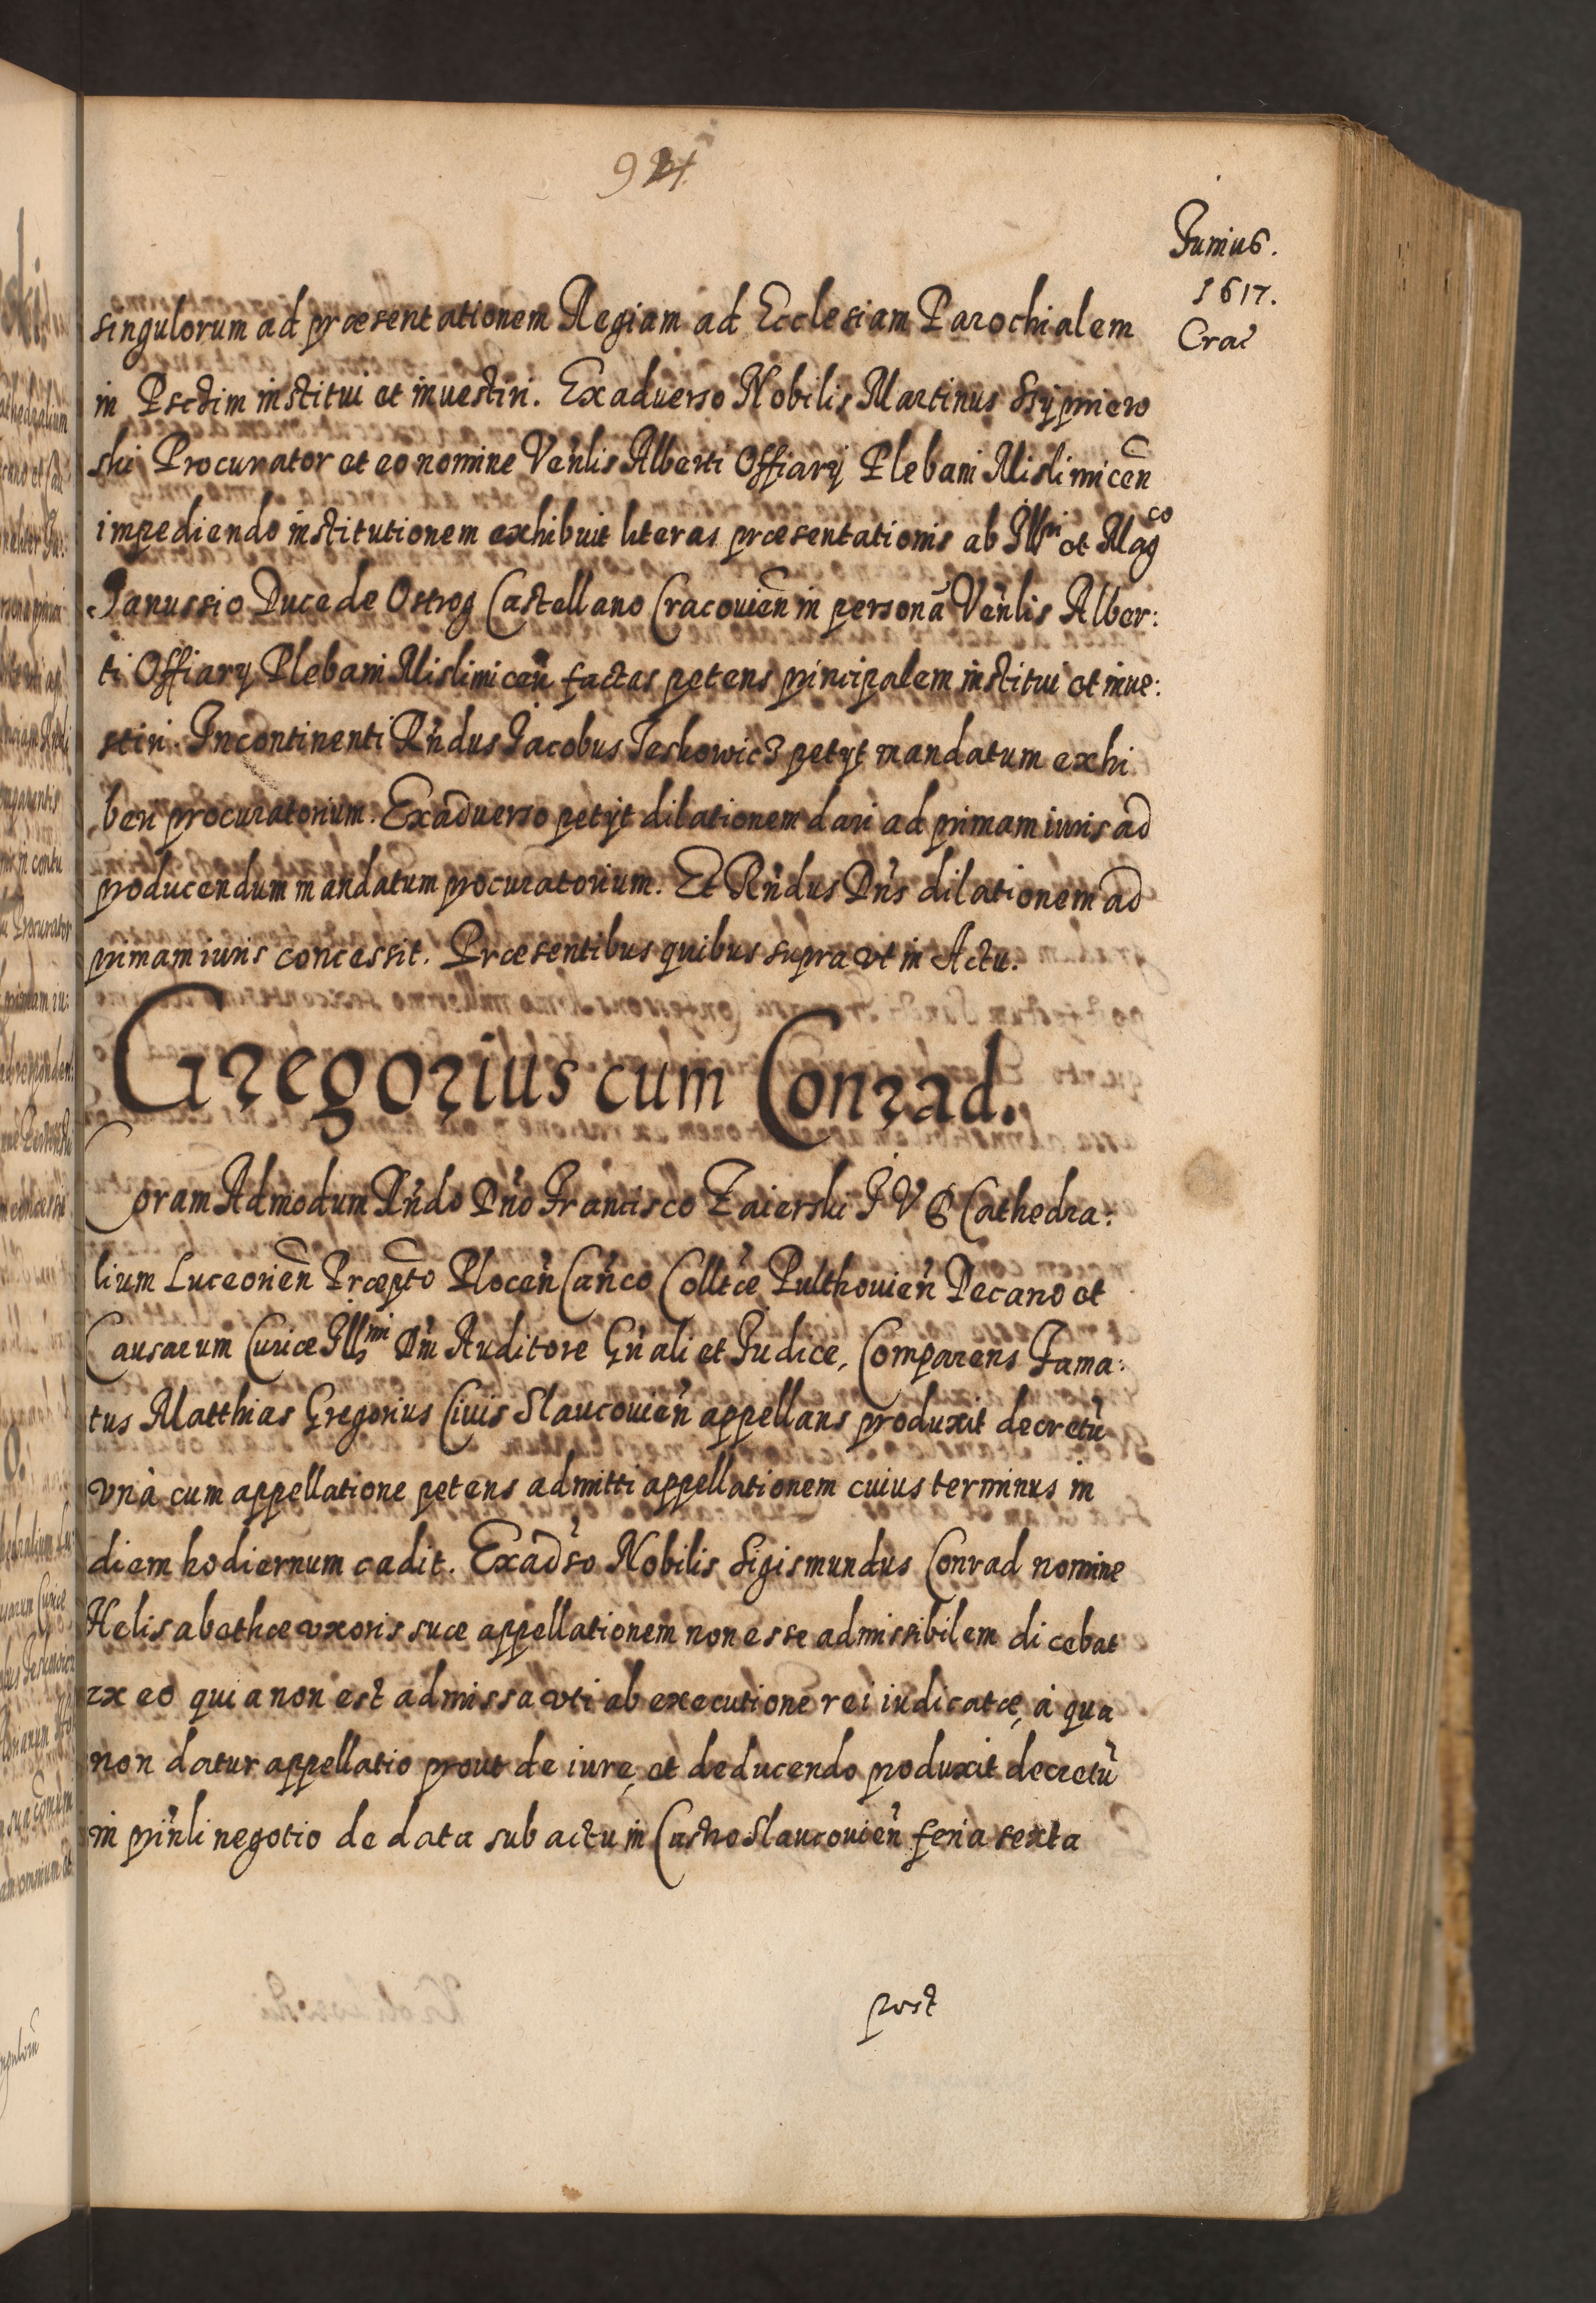 Junius.
1617.
Crac
singulorum ad præsentationem Regiam ad Ecclesiam Parochialem
in Psedim institui et inuestiri. Exaduerso Nobilis Martinus
ski Procurator et eo nomine Venlis Alberti Offiarÿ Plebani Mislimicen
impediendo institutionem exhibuit literas præsentationis ab Ill et Mag co
Janussio Duce de Ostrog Castellano Cracouien in personã Venlis Alber:
ti Offiarÿ Plebani Mislimicen factas petens principalem institui et inue:
stiri. Incontinenti Rndus Jacobus Jeskowicz petyt mandatum exhi
beri procuratorium. Exaduerso petÿt dilationem dari ad primam iuris ad
producendum mandatum procuratorium. Et Rndus Dns dilationem ad
primam iuris concessit. Præsentibus quibus supra vt in Actu.
Gregorius cum Conrad.
Coram Admodum Rndo Dno Francisco Zaierski J V D Cathedra:
lium Luceorien Præpto Plocen Canco Colltæ Pulthouien Decano et
Causarum Curiæ Ill mi Dni Auditore Gnali et Judice, Comparens Fama:
tus Matthias Gregorius Ciuis Slaucouien appellans produxit decretũ
vnà cum appellatione petens admitti appellationem cuius terminus in
diem hodiernum cadit. Exadso Nobilis Sigismundus Conrad nomine
Helisabethæ vxoris suæ appellationem non esse admissibilem dicebat
ex eo quia non est admissa vti ab executione rei iudicatæ, à qua
non datur appellatio prout de iure, et deducendo produxit decretũ
in prinli negotio de data sub actu in Castro Slaucouien feria sexta
post